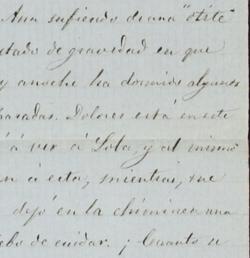 Ana sufriendo de una "otitis"
estado de gravedad en que
y anoche ha dormido algunas
pasadas. Dolores está en este
á ver á Lota, y al mismo
n á esta, mientras, que
dejó en la chiminea una
ebo de cuidar. ¡ Cuanto u